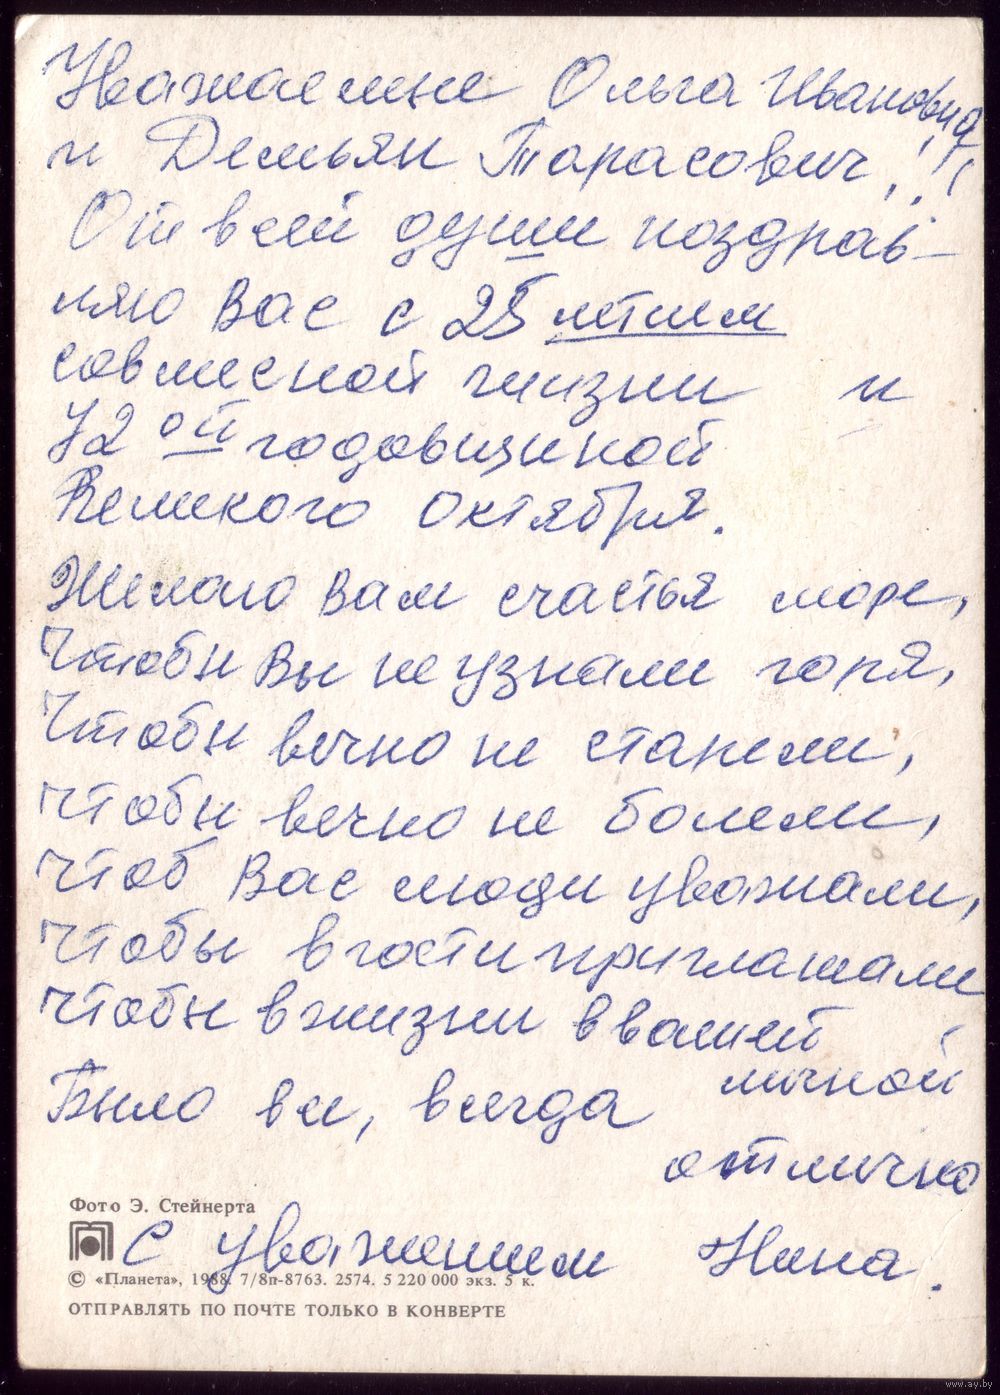 Уважаемые Ольга Ивановна
и Демьян Тарасович!!!
От всей души поздрав-
ляю Вас с 25 летием
совмесной жизни и
72 ой годовщиной
Великого октября.
Желаю Вам счастья море,
Чтобы Вы не узнали горя,
Чтобы вечно не старели,
Чтобы вечно не болели,
Чтоб Вас люди уважали,
Чтобы в гости приглашали
Чтобы в жизни в вашей
личной
Было все, всегда
отлично
Фото Э. Стейнерта
С уважением Нина.
© «Планета», 1988. 7/8п-8763. 2574. 5 220 000 экз. 5 к.
ОТПРАВЛЯТЬ ПО ПОЧТЕ ТОЛЬКО В КОНВЕРТЕ
www.ay.by